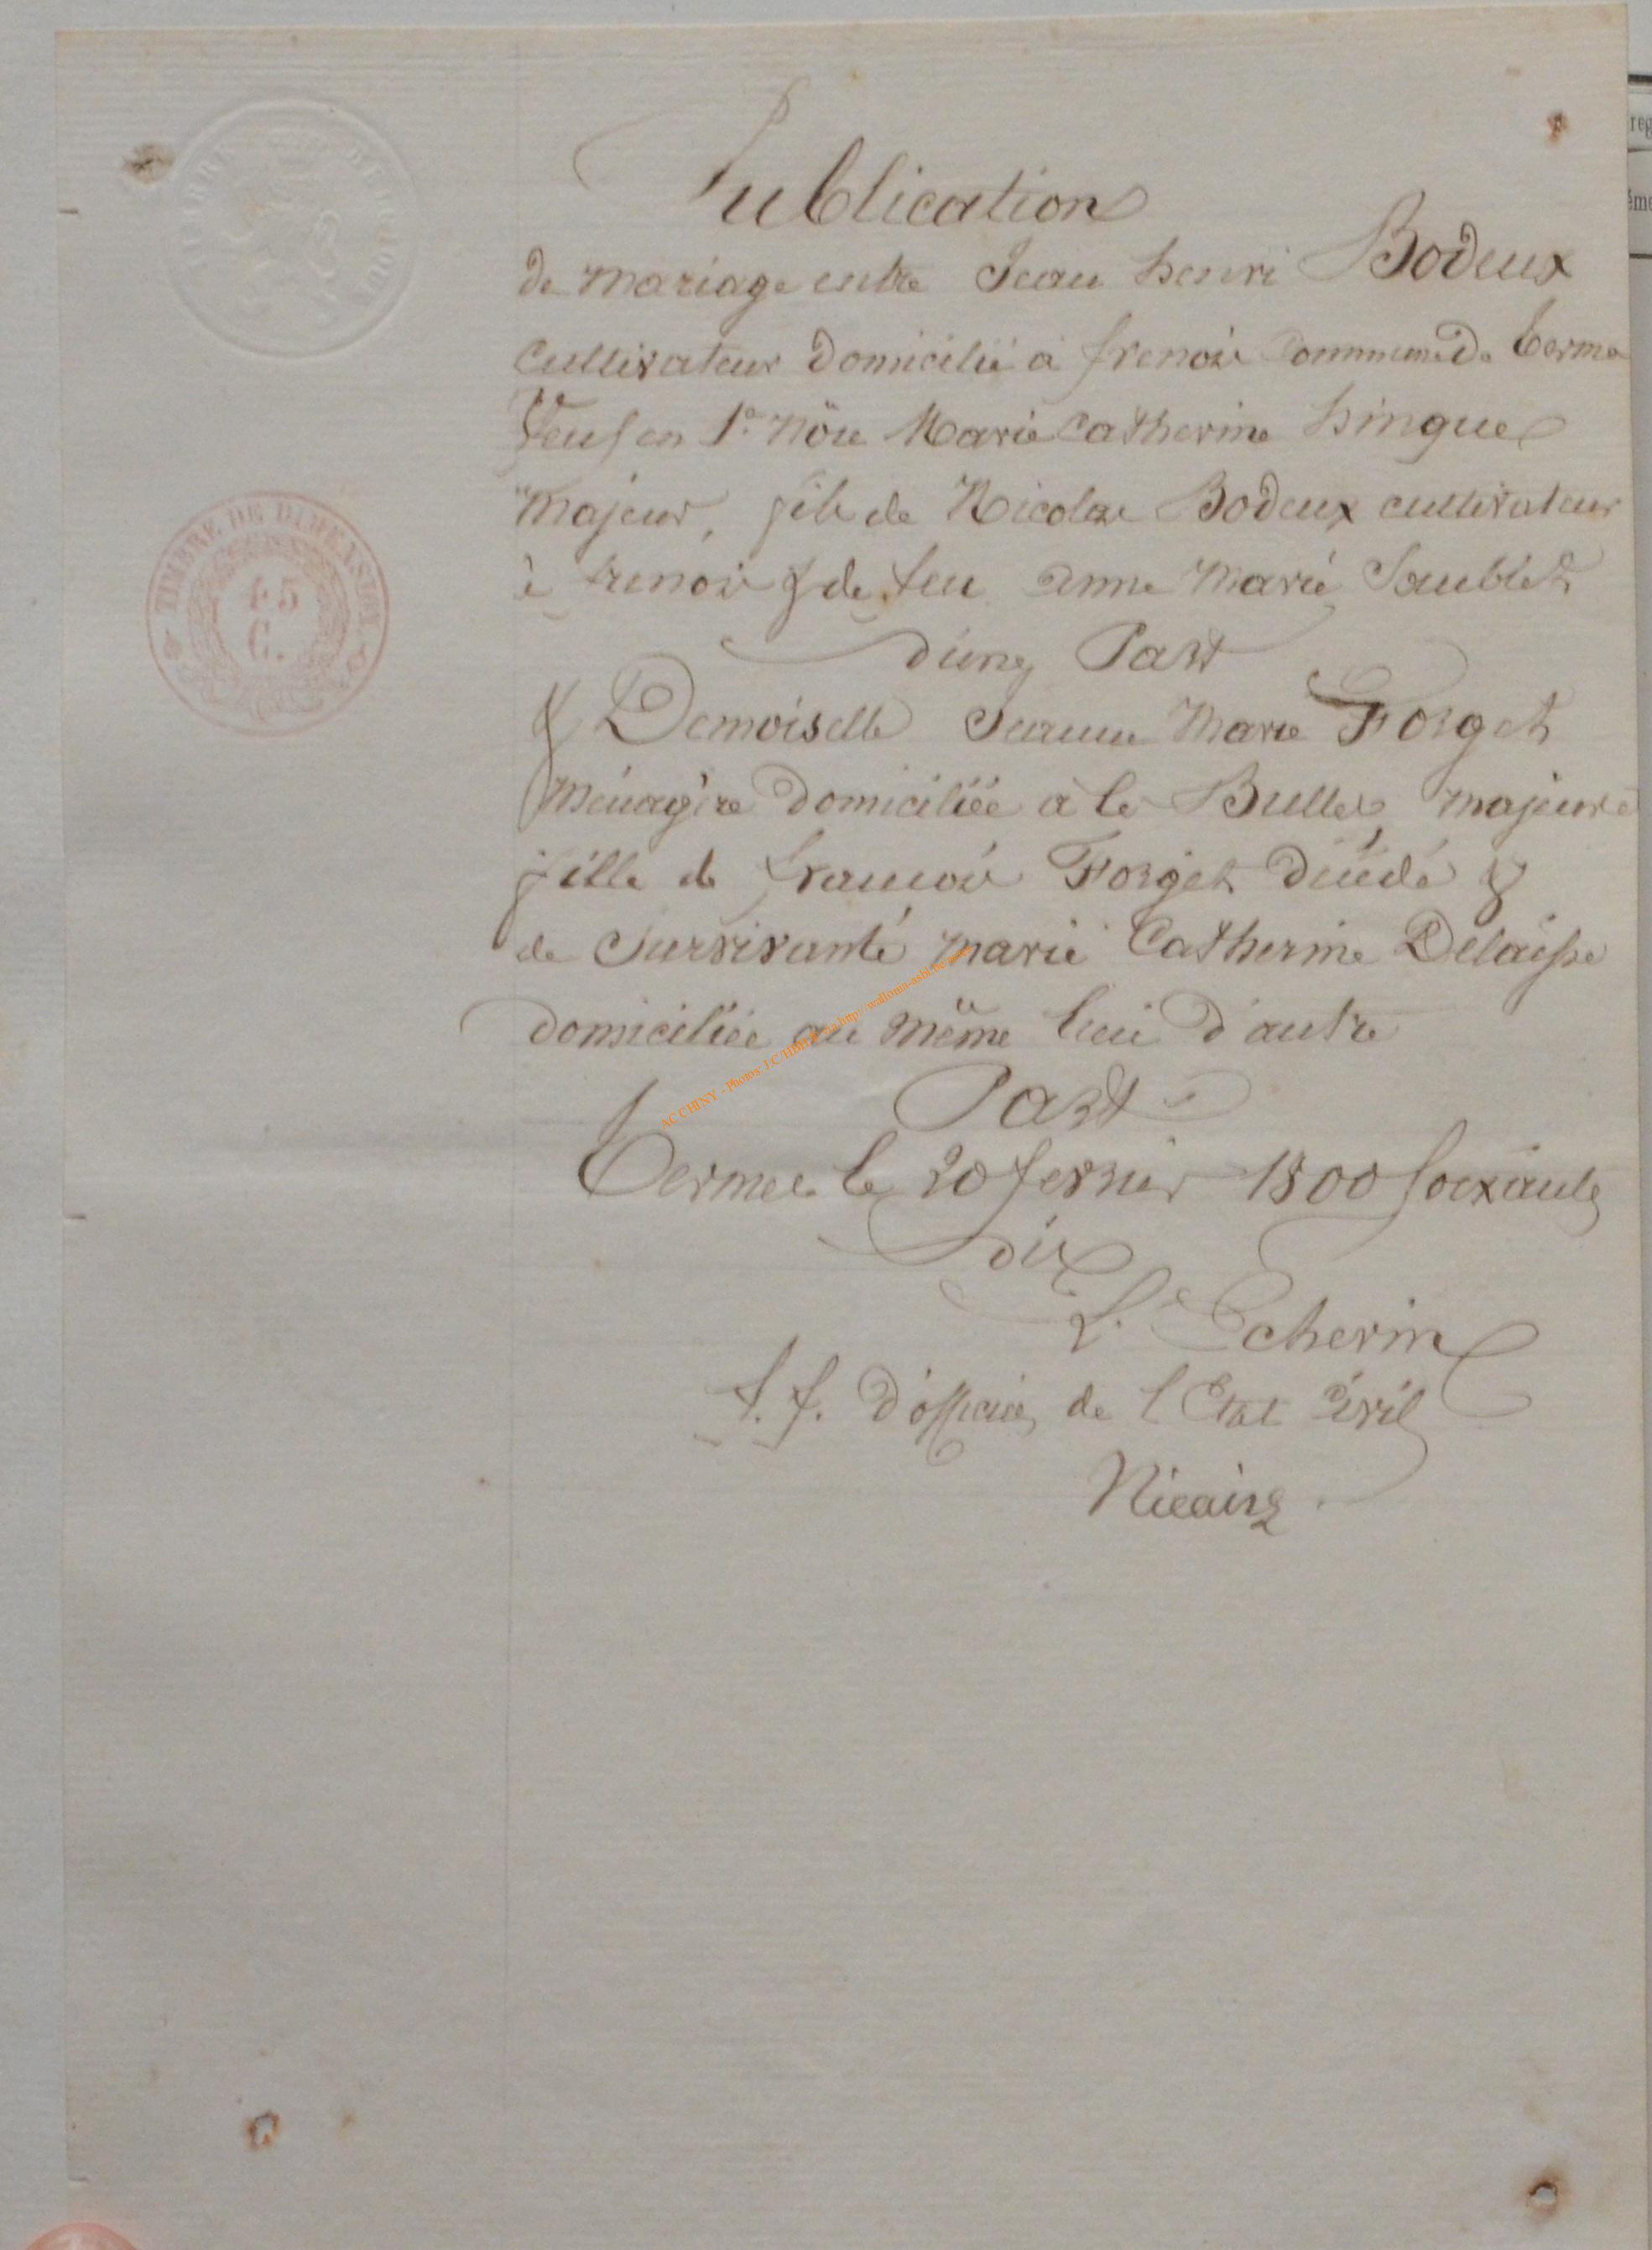 Publication
de mariage entre Jean henri Bodeux
Cultivateur domicilié à frenoi Commune de terme
Veuf en 1e Nôce Marie Catherine hingue
majeur, fils de Nicolas Bodeux cultivateur
à frenoi & de feu anne Marie
d'une Part
& Demoiselle Jeanne Marie Forget
Ménagère domiciliée à la Bulles majeure
fille de francois Forget décédé &
de Survivante marie Catherine Delaisse
domiciliée au même lieu d'autre
Part
termes le 20 fevrier 1800 Soixante
dix
L. Echevin
f. f. d'officier de l'Etat Civil
Nicaise
TIMBRE DE DIMENSION
45
C.
AC CHINY - Photos J.C.
reg
éme